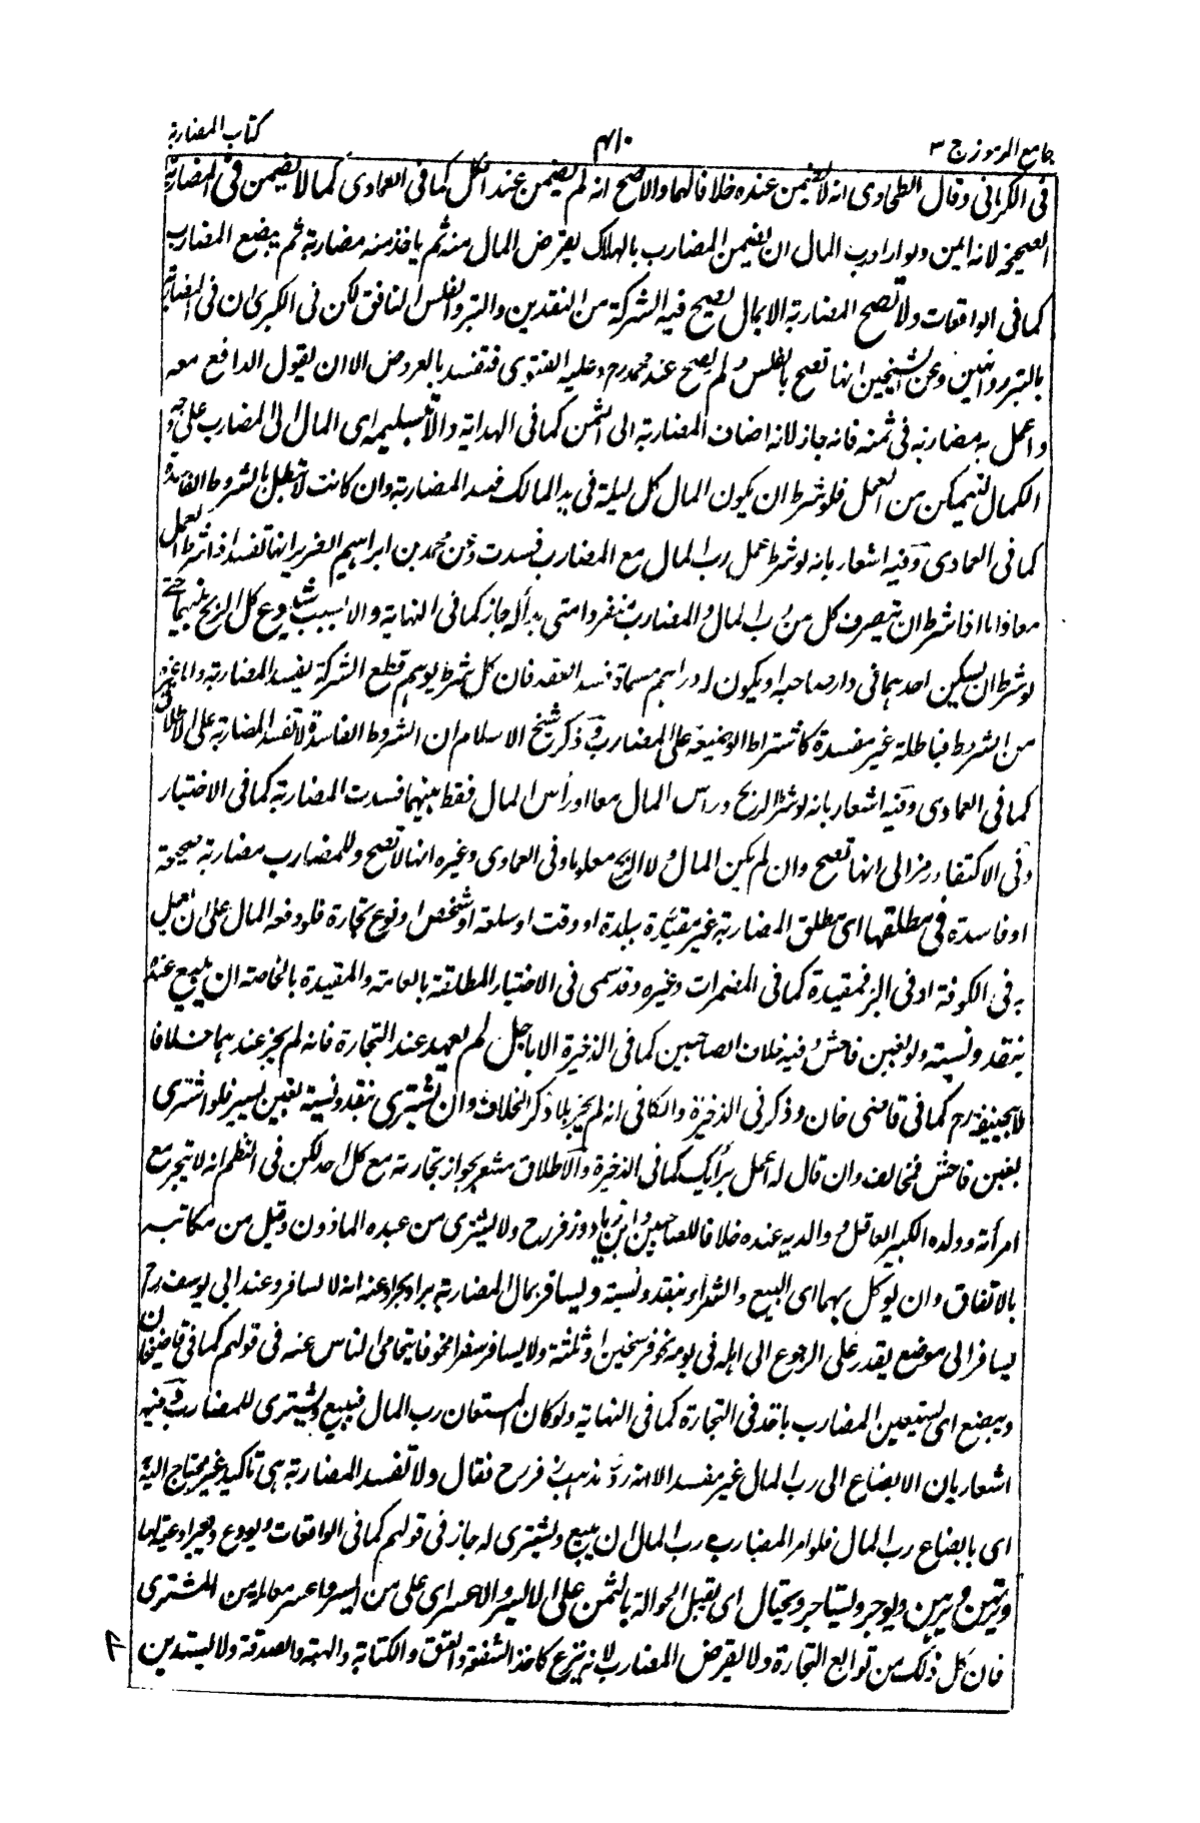 جامع الرموز ج ٣
٤١٠
كتاب المضاربة
فى الكرمانى وقال الطحاوى انه لا يضمن عنده خلافا لهما والاصح انه لم يضمن عند الكل كما فى العمادى كما لا يضمن فى المضاربة
الصحيحة لانه امين ولو اراد رب المال ان يضمن المضارب بالهلاك يقرض المال منه ثم ياخذ منه مضاربة ثم يبضع المضارب
كما فى الواقعات ولا تصح المضاربة الا بمال يصح فيه الشركة من النقدين والتبر والفلس النافق لكن فى الكبرى ان فى المضاربة
بالتبر روايتين وعن الشيخين انها تصح بالفلس ولم يصح عند محمد رح وعليه الفتوى فتفسد بالعروض الا ان يقول الدافع بعه
واعمل به مضاربة فى ثمنه فانه جاز لانه اضاف المضاربة الى الثمن كما فى الهداية والا بتسليمه اى المال الى المضارب على وجه
الكمال ليتمكن من العمل فلو شرط ان يكون المال كل ليلة فى يد المالك فسد المضاربة وان كانت لا تبطل بالشروط الفاسدة
كما فى العمادى وفيه اشعار بانه لو شرط عمل رب المال مع المضارب فسدت وعن محمد بن ابراهيم الضرير انها تفسد اذا شرط العمل
معا واما اذا شرط ان يتصرف كل من رب المال والمضارب منفردا متى بدأ له جاز كما فى النهاية والا بسبب شيوع كل الربح بينهما حتى
لو شرط ان يسكن احدهما فى دار صاحبه او يكون له دراهم مسماة فسد العقد فان كل شرط يوهم قطع الشركة يفسد المضاربة واما غيره
من الشروط فباطلة غير مفسدة كاشتراط الوضيعة على المضارب وذكر شيخ الاسلام ان الشروط الفاسدة لا تفسد المضاربة على الاطلاق
كما فى العمادى وفيه اشعار بانه لو شرط الربح وراس المال معا او رأس المال فقط بينهما فسدت المضاربة كما فى الاختيار
وفى الاكتفاء رمز الى انها تصح وان لم يكن المال ولا الربح معلوما وفى العمادى وغيره انها لا تصح وللمضارب مضاربة صحيحة
او فاسدة فى مطلقها اى مطلق المضاربة غير مقيدة ببلدة او وقت او سلعة او شخص او نوع تجارة فلو دفع المال على ان يعمل
به فى الكوفة او فى البر فمقيدة كما فى المضمرات وغيره وقد سمى فى الاختيار المطلقة بالعامة والمقيدة بالخاصة ان يبيع عنده
بنقد ونسية ولو بغبن فاحش وفيه خلاف الصاحبين كما فى الذخيرة الا باجل لم يعهد عند التجارة فانه لم يجز عندهما خلافا
لابيحنيفة رح كما فى قاضى خان وذكر فى الذخيرة والكافى انه لم يجز بلا ذكر الخلاف وان يشترى بنقد ونسية بغبن يسير فلو اشترى
بغبن فاحش فمخالف وان قال له اعمل برأيك كما فى الذخيرة والاطلاق مشعر بجواز تجارته مع كل احد لكن فى النظم انه لا يتجر مع
امرأته وولده الكبير العاقل ووالديه عنده خلافا للصاحبين وابن زياد وزفر رح ولا يشترى من عبده الماذون وقيل من مكاتبه
بالاتفاق وان يوكل بهما اى البيع والشراء بنقد ونسية ويسافر بمال المضاربة برا وبحرا وعنه انه لا يسافر وعند ابى يوسف رح
يسافر الى موضع يقدر على الرجوع الى اهله فى يومه نحو فرسخين او ثلثة ولا يسافر سفرا مخوفا يتحامى الناس عنه فى قولهم كما فى قاضيخان
ويبضع اى يستعين المضارب باحد فى التجارة كما فى النهاية ولو كان المستعان رب المال فيبيع ويشترى للمضارب وفيه
اشعار بان الابضاع الى رب المال غير مفسد الا انه رد مذهب زفر رح فقال ولا تفسد المضاربة هى تاكيد غير محتاج اليه
اى بابضاع رب المال فلو امر المضارب رب المال ان يبيع ويشترى له جاز فى قولهم كما فى الواقعات ويودع ويعير اوعية لها
ويرتهن ويرهن ويوجر ويستاجر ويحتال اى يقبل الحوالة بالثمن على الايسر والاعسر اى على من ايسر واعسر معاملة من المشترى
فان كل ذلك من توابع التجارة ولا يقرض المضارب لانه تبرع كاخذ الشفعة والعتق والكتابة والهبة والصدقة ولا يستدين